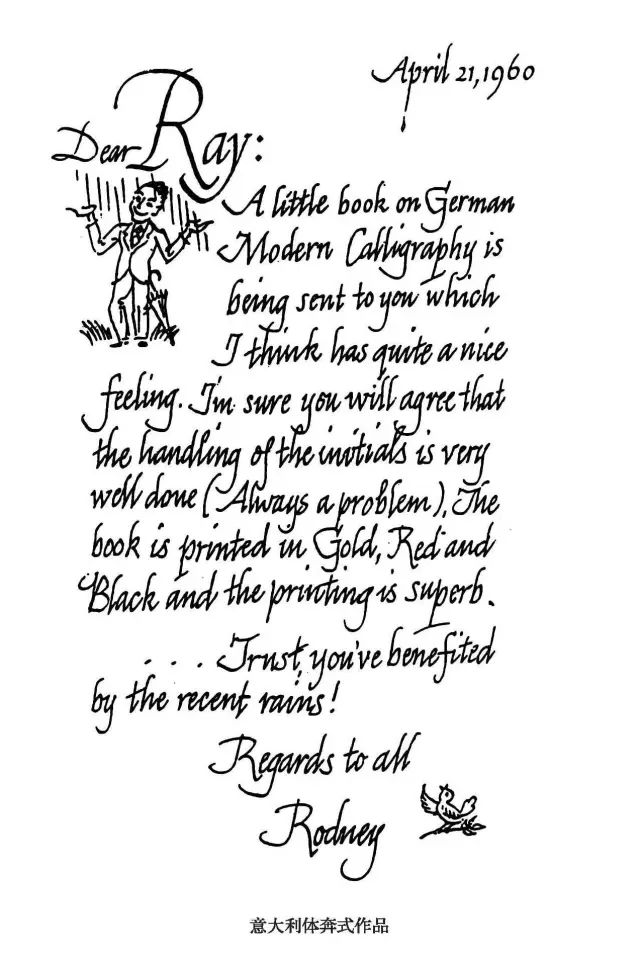 April 21, 1960
Dear Ray:
A little book on German
Modern Calligraphy is
being sent to you which
I think has quite a nice
feeling. I'm sure you will agree that
the handling of the initials is very
well done (Always a problem). The
book is printed in Gold, Red and
Black and the printing is superb.
. . . Trust, you've benefited
by the recent rains!
Regards to all
Rodney
意大利体奔式作品